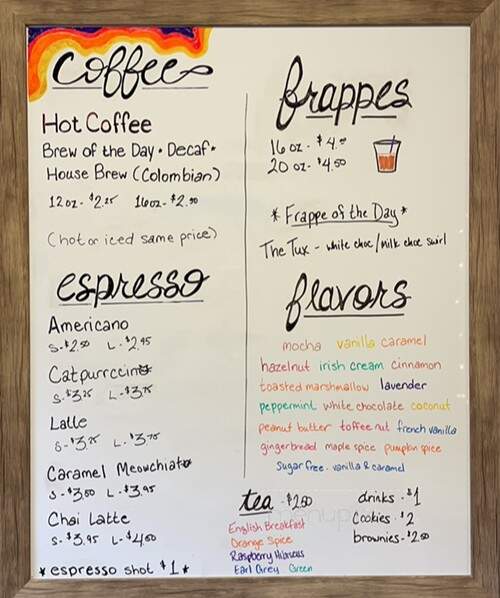 Coffee
Hot Coffee
Brew of the Day • Decaf •
House Brew (Colombian)
12oz - $2.25 16oz - $2.50
(hot or iced same price)
espresso
Americano
S - $2.50 L - $2.95
Catpurrccino
S - $3.25 L - $3.75
Latte
S - $3.25 L - $3.75
Caramel Meowchiato
S - $3.50 L - $3.95
Chai Latte
S - $3.95 L - $4.50
* espresso shot $1 *
frappes
16 oz - $4.00
20 oz - $4.50
* Frappe of the Day *
The Tux - white choc/milk choc swirl
flavors
mocha vanilla caramel
hazelnut irish cream cinnamon
toasted marshmallow lavender
peppermint white chocolate coconut
peanut butter toffee nut french vanilla
gingerbread maple spice pumpkin spice
Sugar free - vanilla & caramel
tea - $2.00
English Breakfast
Orange Spice
Raspberry Hibiscus
Earl Grey Green
drinks - $1
Cookies - $2
brownies - $2.50